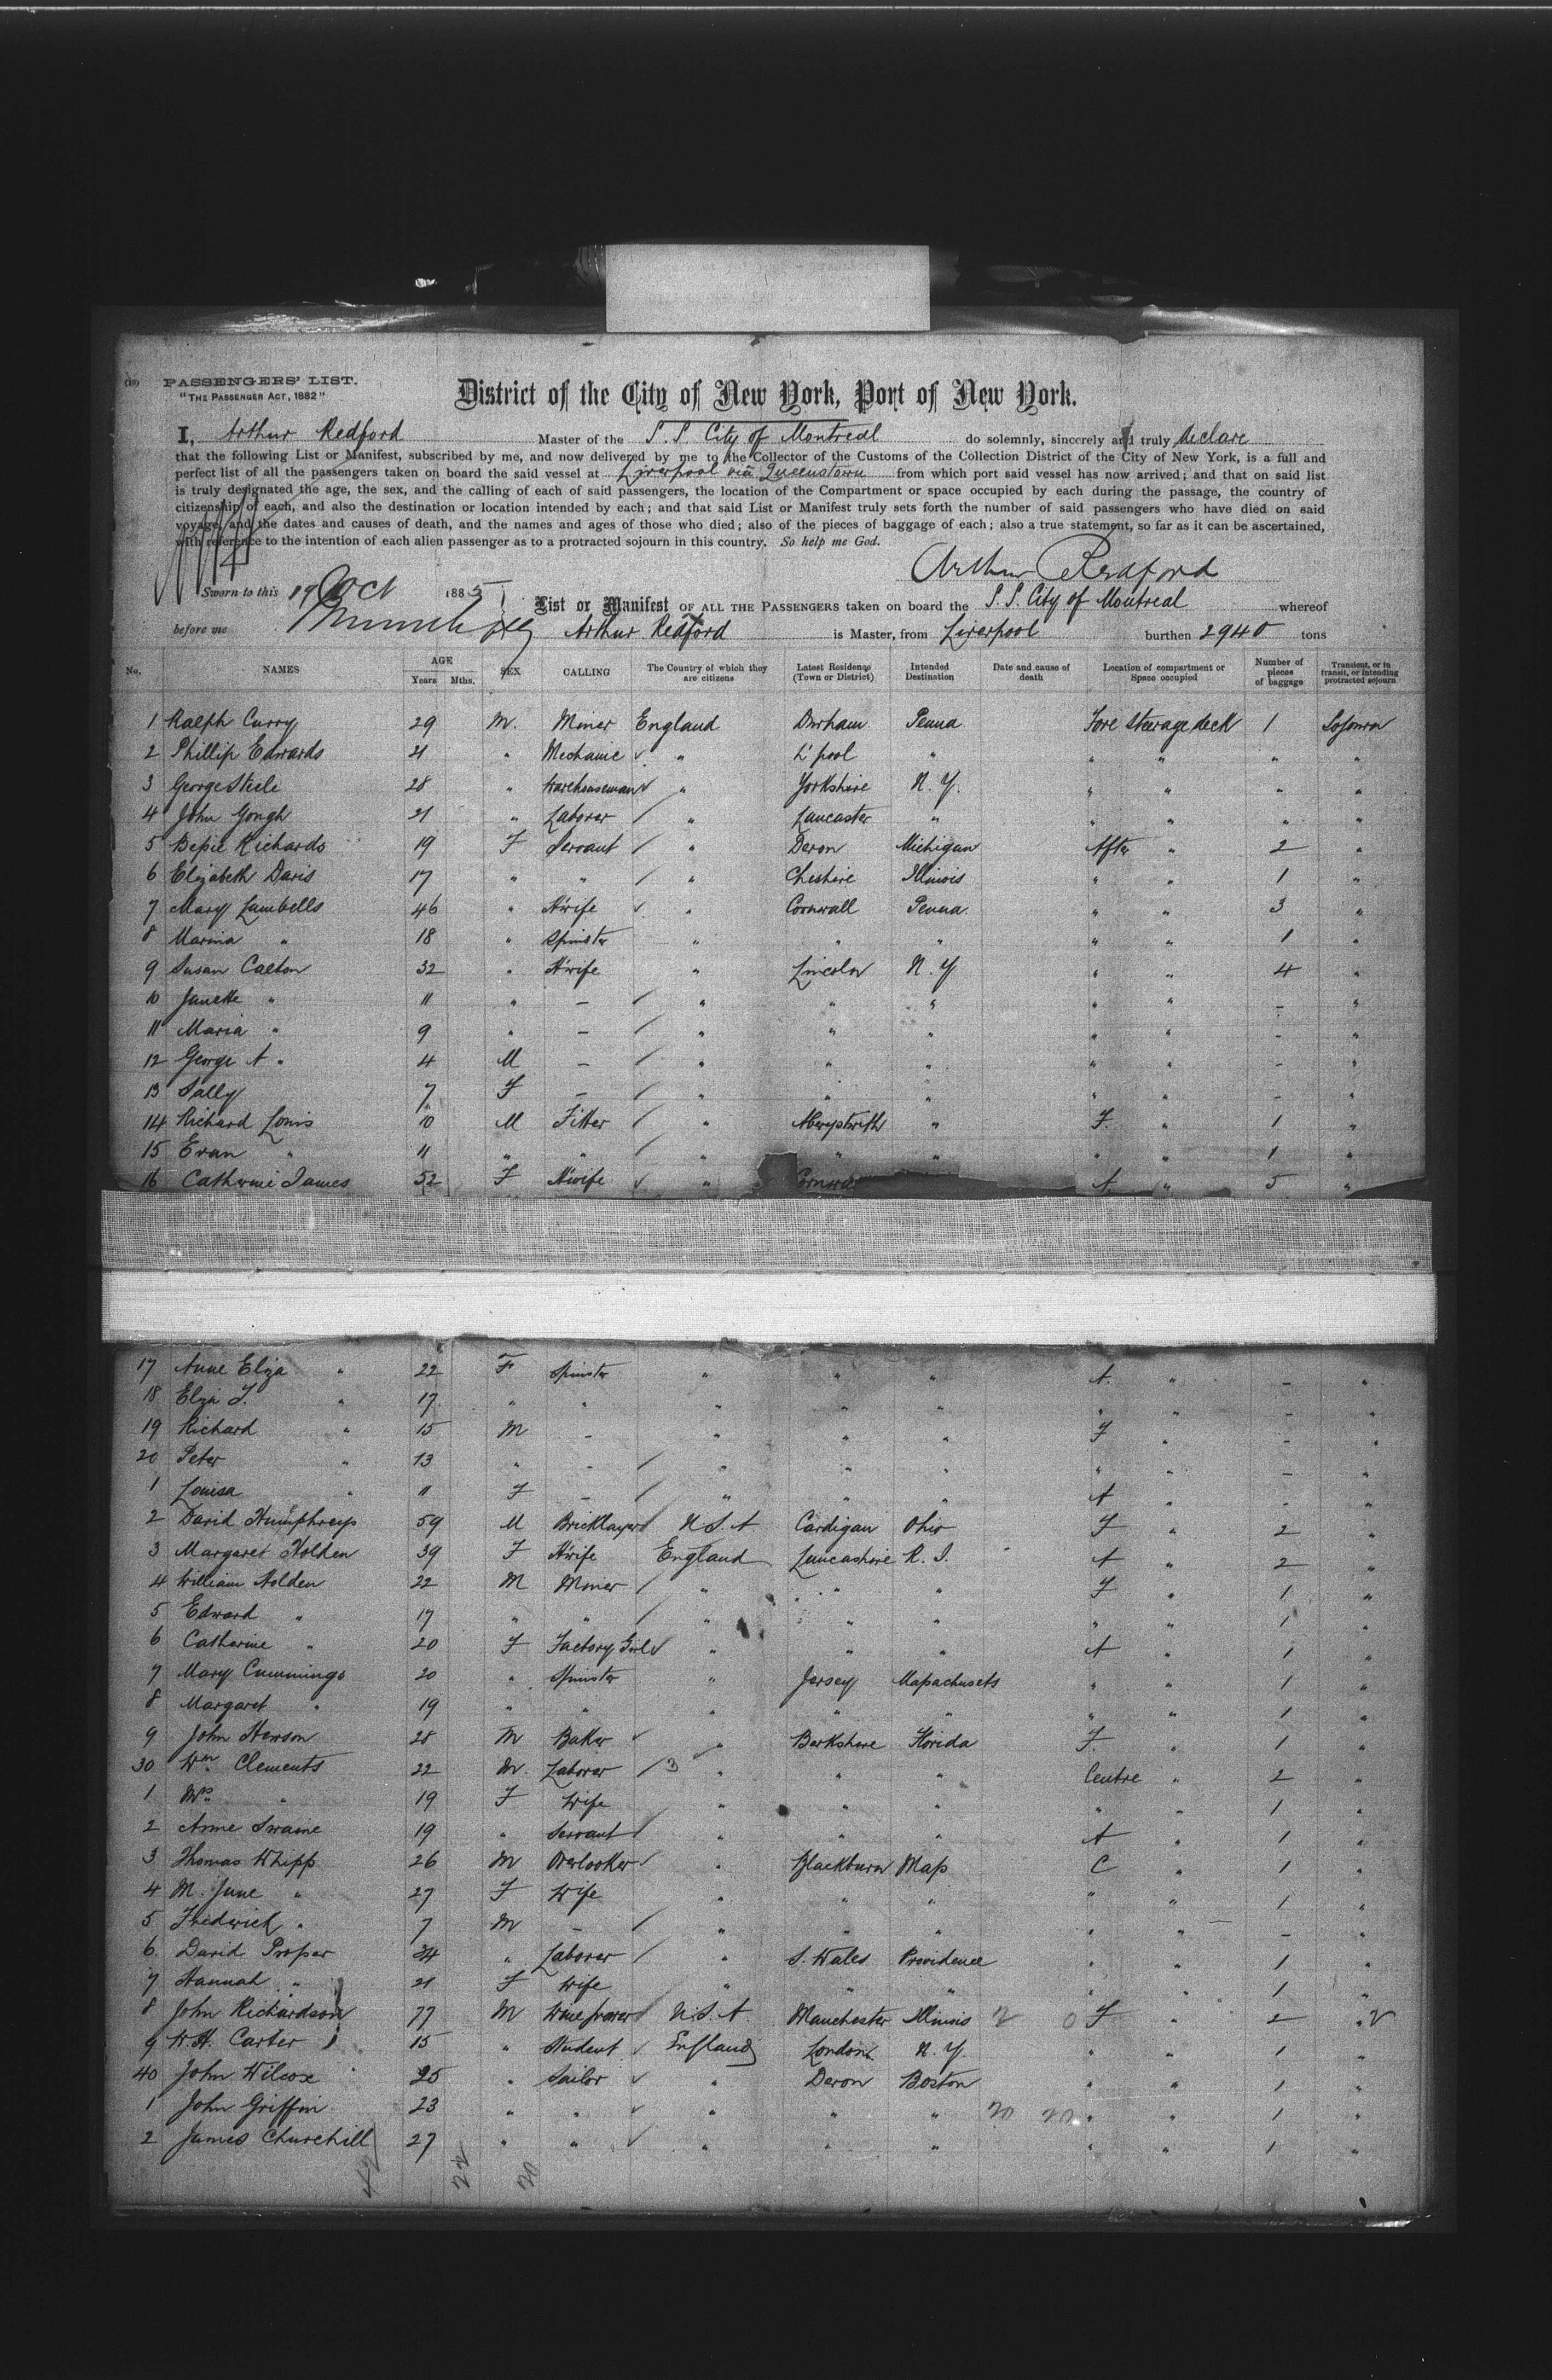 (10) PASSENGERS' LIST.
"THE PASSENGER ACT, 1882"
District of the City of New York, Port of New York.
I, Arthur Redford Master of the S. S. City of Montreal do solemnly, sincerely and truly declare
that the following List or Manifest, subscribed by me, and now delivered by me to the Collector of the Customs of the Collection District of the City of New York, is a full and
perfect list of all the passengers taken on board the said vessel at Liverpool via Queenstown from which port said vessel has now arrived; and that on said list
is truly designated the age, the sex, and the calling of each of said passengers, the location of the Compartment or space occupied by each during the passage, the country of
citizenship of each, and also the destination or location intended by each; and that said List or Manifest truly sets forth the number of said passengers who have died on said
voyage, and the dates and causes of death, and the names and ages of those who died; also of the pieces of baggage of each; also a true statement, so far as it can be ascertained,
with reference to the intention of each alien passenger as to a protracted sojourn in this country. So help me God.
Arthur Redford
Sworn to this 19 Oct 1885
List or Manifest OF ALL THE PASSENGERS taken on board the S. S. City of Montreal whereof
before me Arthur Redford is Master, from Liverpool burthen 2940 tons
No. NAMES AGE Years Mths. SEX CALLING The Country of which they are citizens Latest Residence (Town or District) Intended Destination Date and cause of death Location of compartment or Space occupied Number of pieces of baggage Transient, or in transit, or intending protracted sojourn
1 Ralph Curry 29 M. Miner England Durham Penna Fore Steerage deck 1 Sojourn
2 Phillip Edwards 21 " Mechanic " L'pool " " " " "
3 George Steele 28 " Warehouseman " Yorkshire N. Y. " " " "
4 John Gough 21 " Laborer " Lancaster " " " " "
5 Bessie Richards 19 F Servant " Devon Michigan After " 2 "
6 Elizabeth Davis 17 " " " Cheshire Illinois " " 1 "
7 Mary Lambells 46 " H'wife " Cornwall Penna " " 3 "
8 Marina " 18 " Spinster " " " " " 1 "
9 Susan Calton 32 " H'wife " Lincoln N. Y " " 4 "
10 Janette " 11 " - " " " " " - "
11 Maria " 9 " - " " " " " - "
12 George A " 4 M - " " " " " - "
13 Sally 7 F - " " " " " - "
14 Richard Louis 10 M Fitter " Aberystwith " F. " 1 "
15 Evan " 11 " " " " " " " 1 "
16 Catherine James 52 F H'wife " A. " 5 "
17 Anne Eliza " 22 F Spinster " " " A. " - "
18 Eliza J. " 17 " " " " " " " - "
19 Richard " 15 M - " " " F " - "
20 Peter " 13 " - " " " " " - "
1 Louisa " 11 F - " " " A " - "
2 David Humphreys 59 M Bricklayer U. S. A Cardigan Ohio F " 2 "
3 Margaret Holden 39 F H'wife England Lancashire R. I. A " 2 "
4 William Holden 22 M Miner " " " F " 1 "
5 Edward " 17 " " " " " " " 1 "
6 Catherine " 20 F Factory Girl " " " A " 1 "
7 Mary Cummings 20 " Spinster " Jersey Massachusets " " 1 "
8 Margaret " 19 " " " " " " " 1 "
9 John Hewson 28 M Baker " Berkshire Florida F. " 1 "
30 Wm Clements 22 M. Laborer 3 " " " Centre " 2 "
1 Mrs " 19 F Wife " " " " " 1 "
2 Anne Swaine 19 " Servant " " " A " 1 "
3 Thomas Whipp 26 M Overlooker " Blackburn Mass C " 1 "
4 M. Jane " 27 F Wife " " " " " 1 "
5 Fredrick " 7 M - " " " " " - "
6. David Prosser 34 " Laborer " S. Wales Providence " " 1 "
7 Hannah " 21 F Wife " " " " " 1 "
8 John Richardson 77 M U. S. A. Manchester Illinois F " 2 "
9 W. H. Carter 15 " Student England London N. Y. " " 1 "
40 John Wilcox 25 " Sailor " Devon Boston " " 1 "
1 John Griffin 23 " " " " " 20 20 " " 1 "
2 James Churchill 27 " " " " " " " 1 "
42 22 20